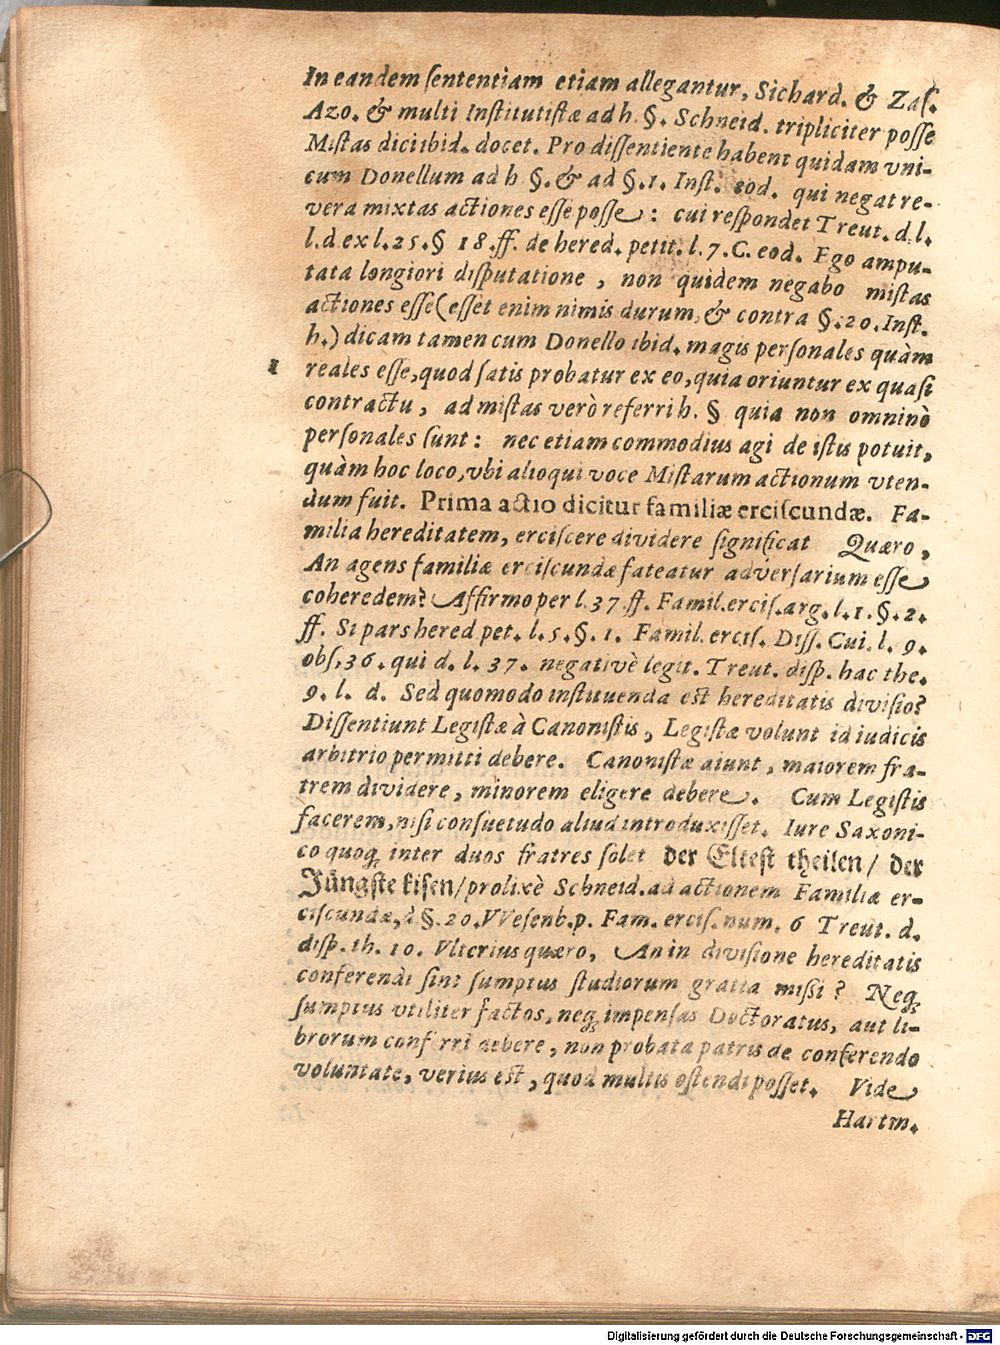 In eandem ſententiam etiam allegantur, Sichard. & Zaſ.
Azo. & multi Inſtitutiſtæ ad h. §. Schneid. tripliciter poſſe
Miſtas dici ibid. docet. Pro diſſentiente habent quidam vni-
cum Donellum ad h §. & ad §. 1. Inſt. eod. qui negat re-
vera mixtas actiones eſſe poſſe: cui reſpondet Treut. d. l.
l. d ex l. 25. § 18. ff. de hered. petit. l. 7. C. eod. Ego ampu-
tata longiori diſputatione, non quidem negabo miſtas
actiones eſſe (eſſet enim nimis durum, & contra §. 20. Inſt.
h.) dicam tamen cum Donello ibid. magis perſonales quàm
1 reales eſſe, quod ſatis probatur ex eo, quia oriuntur ex quaſi
contractu, ad miſtas verò referri h. § quia non omninò
perſonales ſunt: nec etiam commodius agi de iſtis potuit,
quàm hoc loco, vbi alioqui voce Miſtarum actionum vten-
dum fuit. Prima actio dicitur familiæ erciſcundæ. Fa-
milia hereditatem, erciſcere dividere ſignificat Quæro,
An agens familiæ erciſcundæ fateatur adverſarium eſſe
coheredem? Affirmo per l. 37. ff. Famil. erciſ. arg. l. 1. §. 2.
ff. Si pars hered pet. l. 5. §. 1. Famil. erciſ. Diſſ. Cui. l. 9.
obſ. 36. qui d. l. 37. negativè legit. Treut. diſp. hac the.
9. l. d. Sed quomodo inſtituenda est hereditatis diviſio?
Diſſentiunt Legiſtæ à Canoniſtis, Legiſtæ volunt id iudicis
arbitrio permitti debere. Canoniſtæ aiunt, maiorem fra-
trem dividere, minorem eligere debere. Cum Legiſtis
facerem, niſi conſuetudo aliud introduxiſſet. Iure Saxoni-
co quoq; inter duos fratres ſolet der Elteſt theilen / der
Jüngſte kiſen / prolixè Schneid. ad actionem Familiæ er-
ciſcundæ, d §. 20. VVeſenb. p. Fam. erciſ. num. 6 Treut. d.
diſp. th. 10. Vlterius quæro, An in diviſione hereditatis
conferendi ſint ſumptus ſtudiorum gratia miſſi? Neq;
ſumptus vtiliter factos, neq; impenſas Doctoratus, aut li-
brorum conferri debere, non probata patris de conferendo
voluntate, verius est, quod multis oſtendi poſſet. Vide
Hartm.
Digitalisierung gefördert durch die Deutsche Forschungsgemeinschaft - DFG